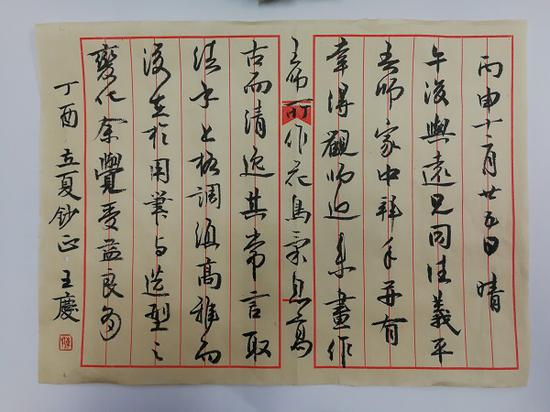 丙申十二月廿五日晴
午後與遠兄同往義平
吾師家中拜年并有
幸得觀師近來畫作
師所作花鳥氣息高
古而清逸其常言取
法乎上格調須高雅而
後在於用筆与造型之
變化余覺受益良多
丁酉立夏鈔正王慶